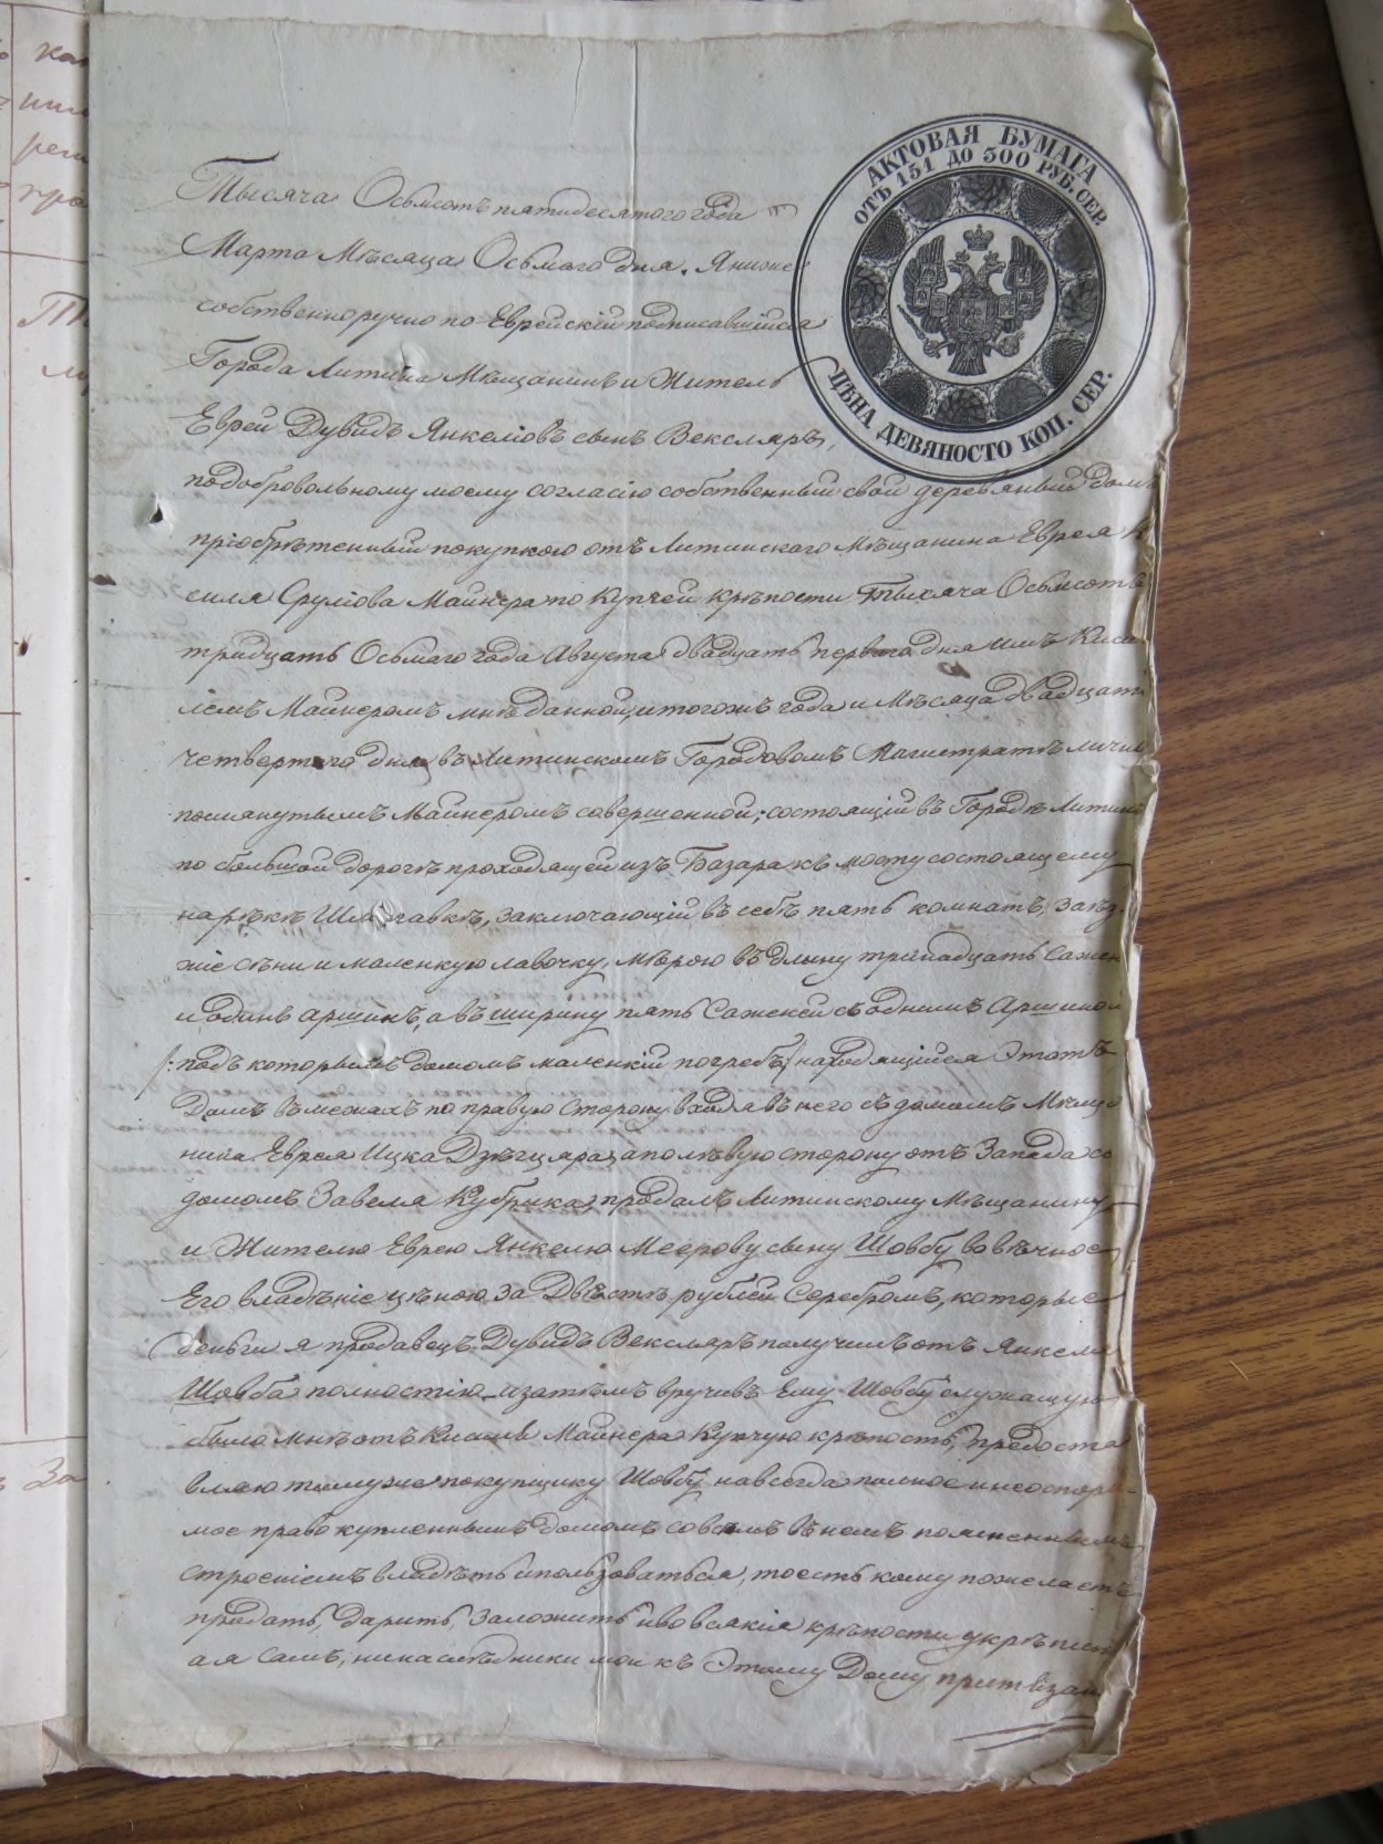 АКТОВАЯ БУМАГА
ОТЪ 151 ДО 300 РУБ. СЕР.
ЦѢНА ДЕВЯНОСТО КОП. СЕР.
Тысяча Осьмсотъ пятидесятого года
Марта Мѣсяца Осьмаго дня. Я ниже
собственноручно по Еврейскій подписавшійся
Города Литина Мѣщанинъ и Житель
Еврей Дувидъ Янкеліовъ сынъ Векслярь,
подобровольному моему согласію собственный свой деревяный домъ
пріобрѣтенный покупкою отъ Литинскаго Мѣщанина Еврея К
силя Сруліова Майнера по Купчей крѣпости Тысяча Осьмсотъ
тридцать Осьмаго года Августа двадцать первого дня имъ Киси
ліемъ Майнеромъ мнѣ данной, итогожъ года и Мѣсяца двадцать
четвертого дня въ Литинскомъ Городовомъ Магистратѣ лично
помянутымъ Майнеромъ совершенной; состоящій въ Городѣ Литинѣ
по большой дорогѣ проходящей изъ Базара къ мосту состоящему
нарѣкѣ заключающій въ себѣ пять комнатъ, заѣз-
жіе сѣни и маленкую лавочку, мѣрою въ длину тринадцать Сажен
и одинъ аршинъ, а въ ширину пять Саженей съ однимъ Аршиной
/: подъ которымъ домомъ маленкій погребъ:/ находящійся Этотъ
Домъ въ межахъ по правую сторону входя въ него съ домомъ Мѣща
нина Еврея Ицка а по лѣвую сторону отъ Запада со
домомъ Завеля продалъ Литинскому Мѣщанину
и Жителю Еврею Янкелю Меерову сыну Шовбу во вѣчное
Его владѣніе цѣною за Двѣстѣ рублей Серебромъ, которые
деньги я продавецъ Дувидъ Векслярь получилъ отъ Янкеля
Шовба полностію и затѣмъ вручивъ Ему Шовбу служащую
было мнѣ отъ Кисиля Майнера Купчую крѣпость, предоста
вляю томуже покупщику Шовбу навсегда полное и неоспори-
мое право купленнымъ домомъ совсѣмъ въ немъ помѣщеннымъ
строеніемъ владѣть и пользоваться, тоесть кому пожелаетъ
продать, дарить, заложить и во всякія крѣпости укрѣпить
а я самъ, ни наслѣдники мои къ Этому Дому притязан